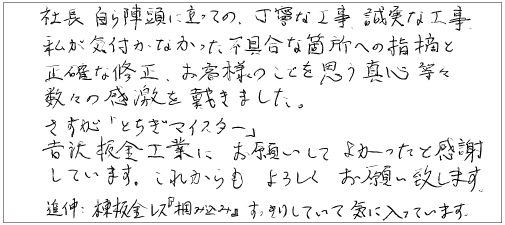 社長 自ら陣頭に立っての、丁寧な工事、誠実な工事
私が気付かなかった不具合な箇所への指摘と
正確な修正、お客様のことを思う真心 等々
数々の感激を戴きました。
さすが「とちぎマイスター」
吉沢板金工業に お願いして よかったと感謝
しています。これからも よろしく お願い致します
追伸:棟板金レス『掴み込み』すっきりしていて気に入っています。